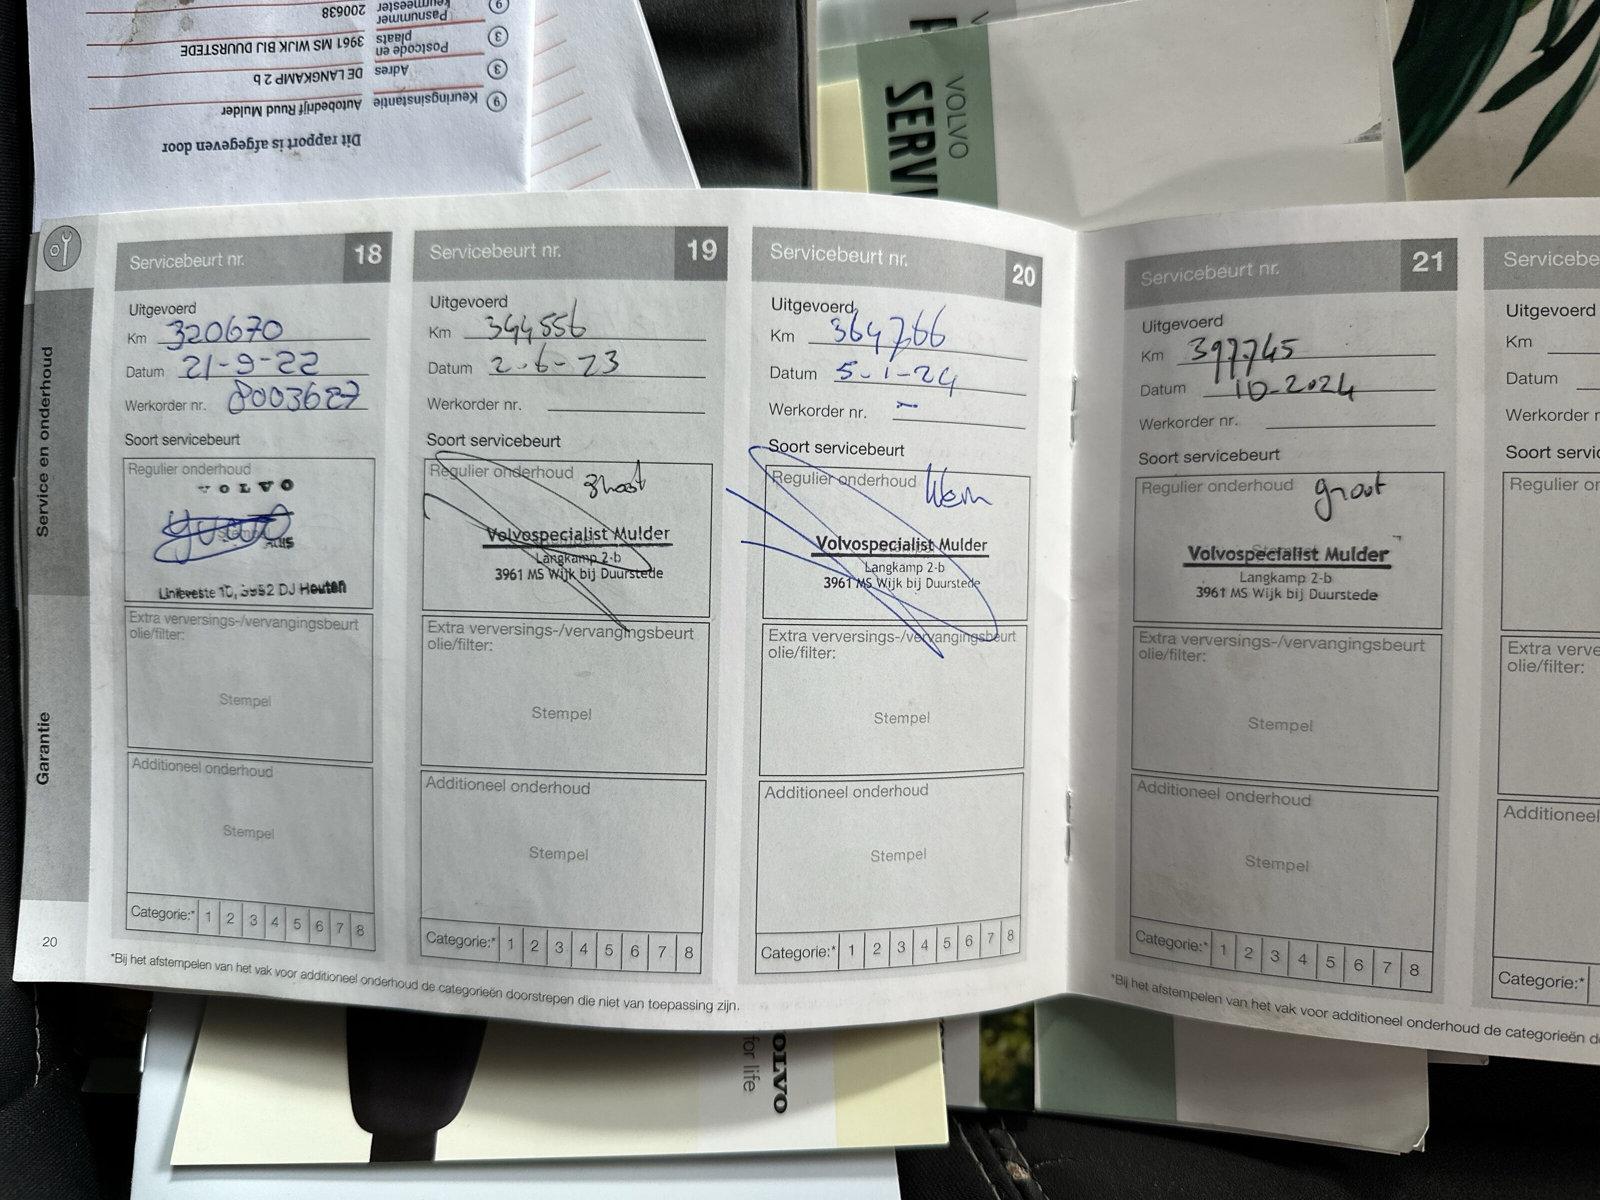 Dit rapport is afgegeven door
9 Keuringsinstantie Autobedrijf Ruud Mulder
3 Adres DE LANGKAMP 2 b
3 Postcode en plaats 3961 MS WIJK BIJ DUURSTEDE
9 Pasnummer keurmeester 200638
VOLVO
SERVI
Service en onderhoud
Garantie
20
Servicebeurt nr. 18
Uitgevoerd
Km 320670
Datum 21-9-22
Werkorder nr. 8003627
Soort servicebeurt
Regulier onderhoud
VOLVO
groot
Linieveste 10, 3992 DJ Houten
Extra verversings-/vervangingsbeurt
olie/filter:
Stempel
Additioneel onderhoud
Stempel
Categorie:* 1 2 3 4 5 6 7 8
Servicebeurt nr. 19
Uitgevoerd
Km 344556
Datum 2-6-23
Werkorder nr.
Soort servicebeurt
Regulier onderhoud groot
Volvospecialist Mulder
Langkamp 2-b
3961 MS Wijk bij Duurstede
Extra verversings-/vervangingsbeurt
olie/filter:
Stempel
Additioneel onderhoud
Stempel
Categorie:* 1 2 3 4 5 6 7 8
Servicebeurt nr. 20
Uitgevoerd
Km 364766
Datum 5-1-24
Werkorder nr. -
Soort servicebeurt
Regulier onderhoud klein
Volvospecialist Mulder
Langkamp 2-b
3961 MS Wijk bij Duurstede
Extra verversings-/vervangingsbeurt
olie/filter:
Stempel
Additioneel onderhoud
Stempel
Categorie:* 1 2 3 4 5 6 7 8
*Bij het afstempelen van het vak voor additioneel onderhoud de categorieën doorstrepen die niet van toepassing zijn.
Servicebeurt nr. 21
Uitgevoerd
Km 397745
Datum 10-2024
Werkorder nr.
Soort servicebeurt
Regulier onderhoud groot
Volvospecialist Mulder
Langkamp 2-b
3961 MS Wijk bij Duurstede
Extra verversings-/vervangingsbeurt
olie/filter:
Stempel
Additioneel onderhoud
Stempel
Categorie:* 1 2 3 4 5 6 7 8
*Bij het afstempelen van het vak voor additioneel onderhoud de categorieën d
Servicebe
Uitgevoerd
Km
Datum
Werkorder n
Soort servic
Regulier on
Extra verve
olie/filter:
Additioneel
Categorie:*
OLVO
for life